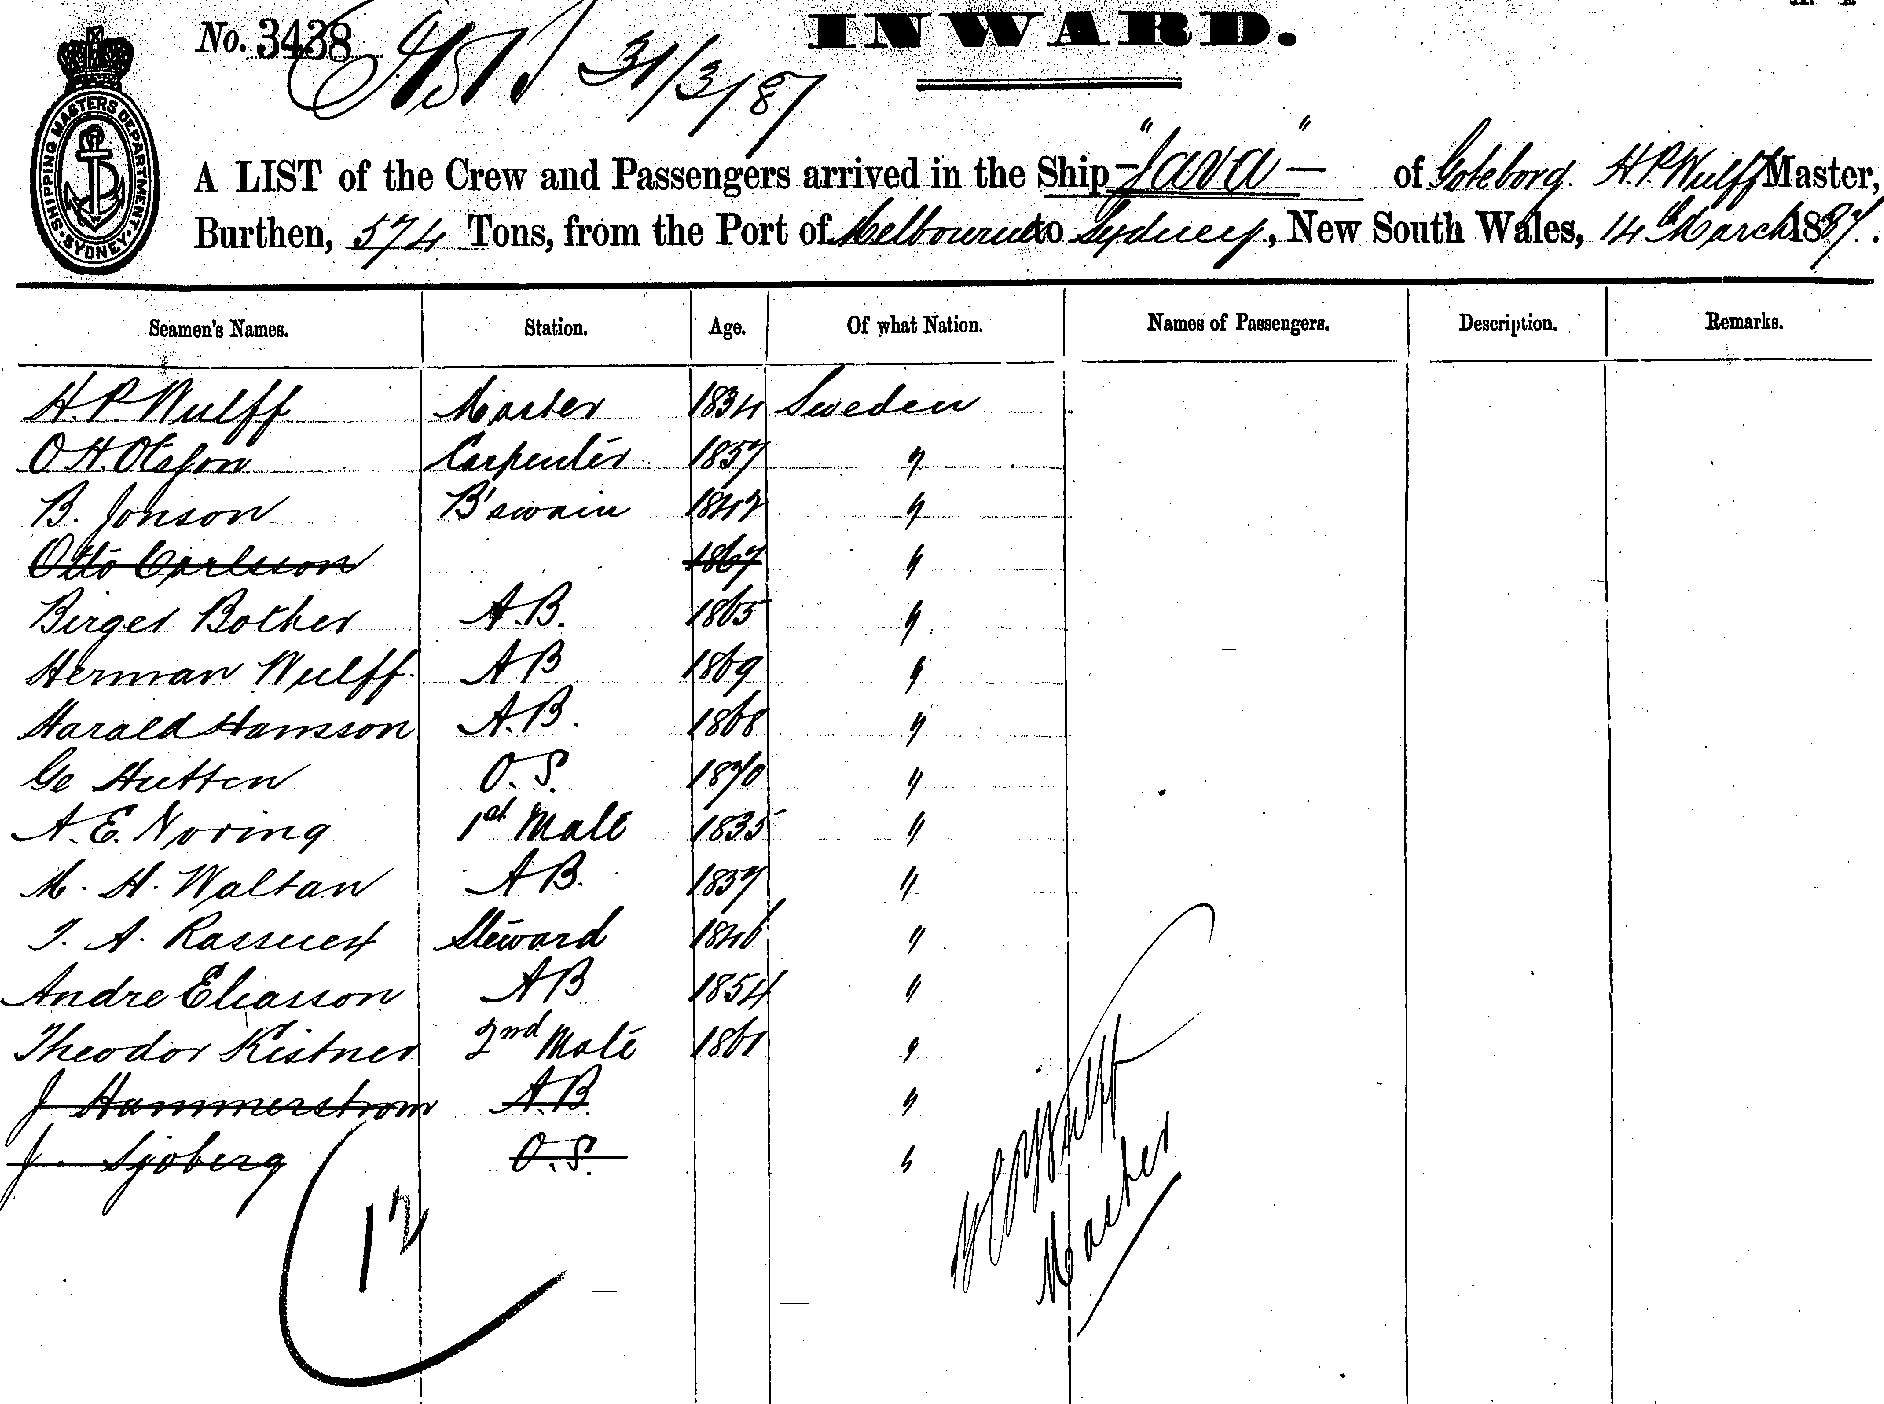 INWARD.
No. 3438
31/3/87
SHIPPING MASTERS DEPARTMENT. SYDNEY.
A LIST of the Crew and Passengers arrived in the Ship "Java" of Goteborg H.P. Wulff Master,
Burthen, 574 Tons, from the Port of Melbourne to Sydney, New South Wales, 14th March 1887.
Seamen's Names. Station. Age. Of what Nation. Names of Passengers. Description. Remarks.
H. P. Wulff Master 1834 Sweden
O. H. Olafson Carpenter 1857 "
B. Jonson B'swain 1842 "
Otto Carlsson 1867 "
Birger Bother A.B. 1865 "
Herman Wulff A B 1869 "
Harald Hansson A.B. 1868 "
Ge Hutten O.S. 1870 "
A. E. Noring 1st Mate 1835 "
M. H. Waltan A B. 1857 "
A. Steward 1846 "
Andre Eliasson A B 1854 "
Theodor Kistner 2nd Mate 1861 "
J Hammerstrom A.B. "
J. Sjoberg O.S. "
12
H P Wulff
Master